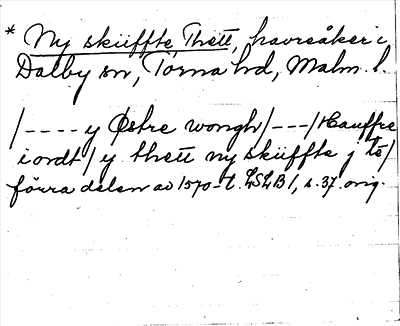 * Ny skiiffte Thett, havreåker i
Dalby sn, Torna hd, Malm. l.
/---- y Østre wongh /---/ Hauffre
i ordt / y thett ny skiiffte j tē /
förra delen av 1570-t. LSLB 1, s. 37. orig.